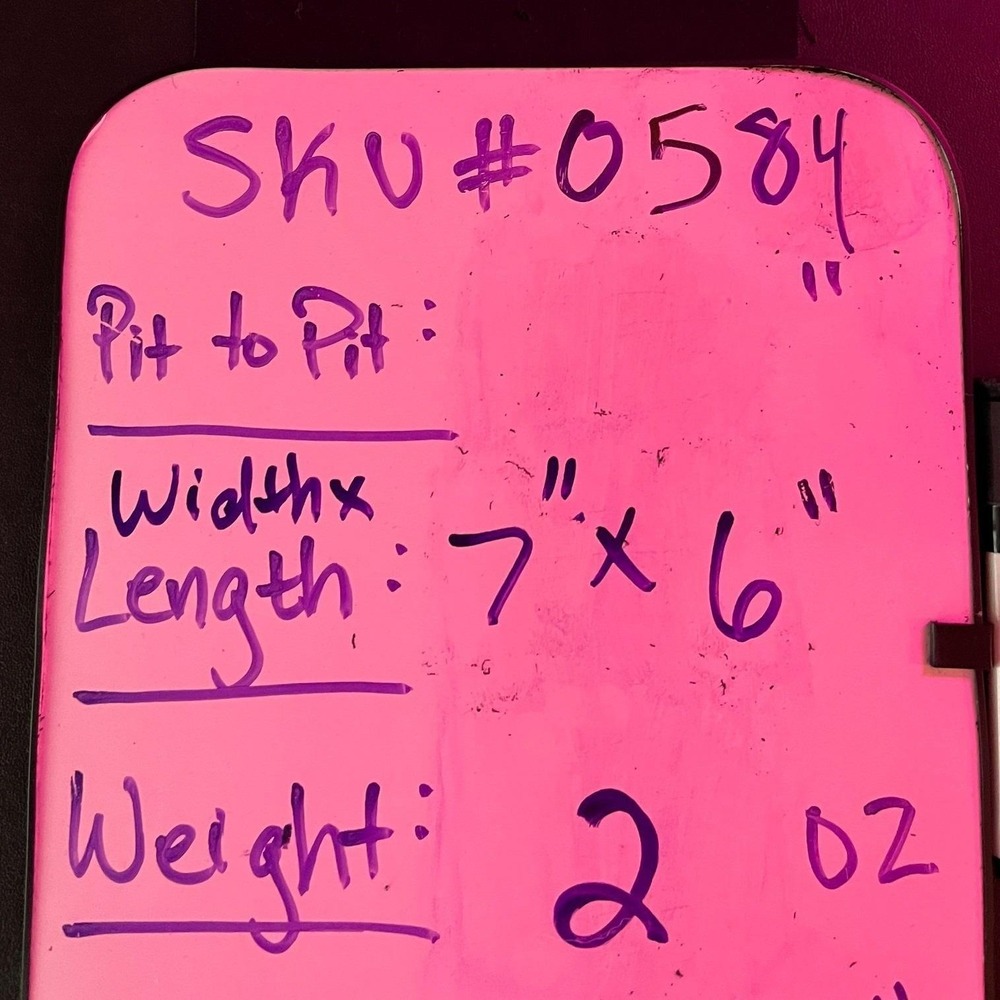 SKU #0584
Pit to Pit: "
Width x
Length: 7" x 6"
Weight: 2 oz
"